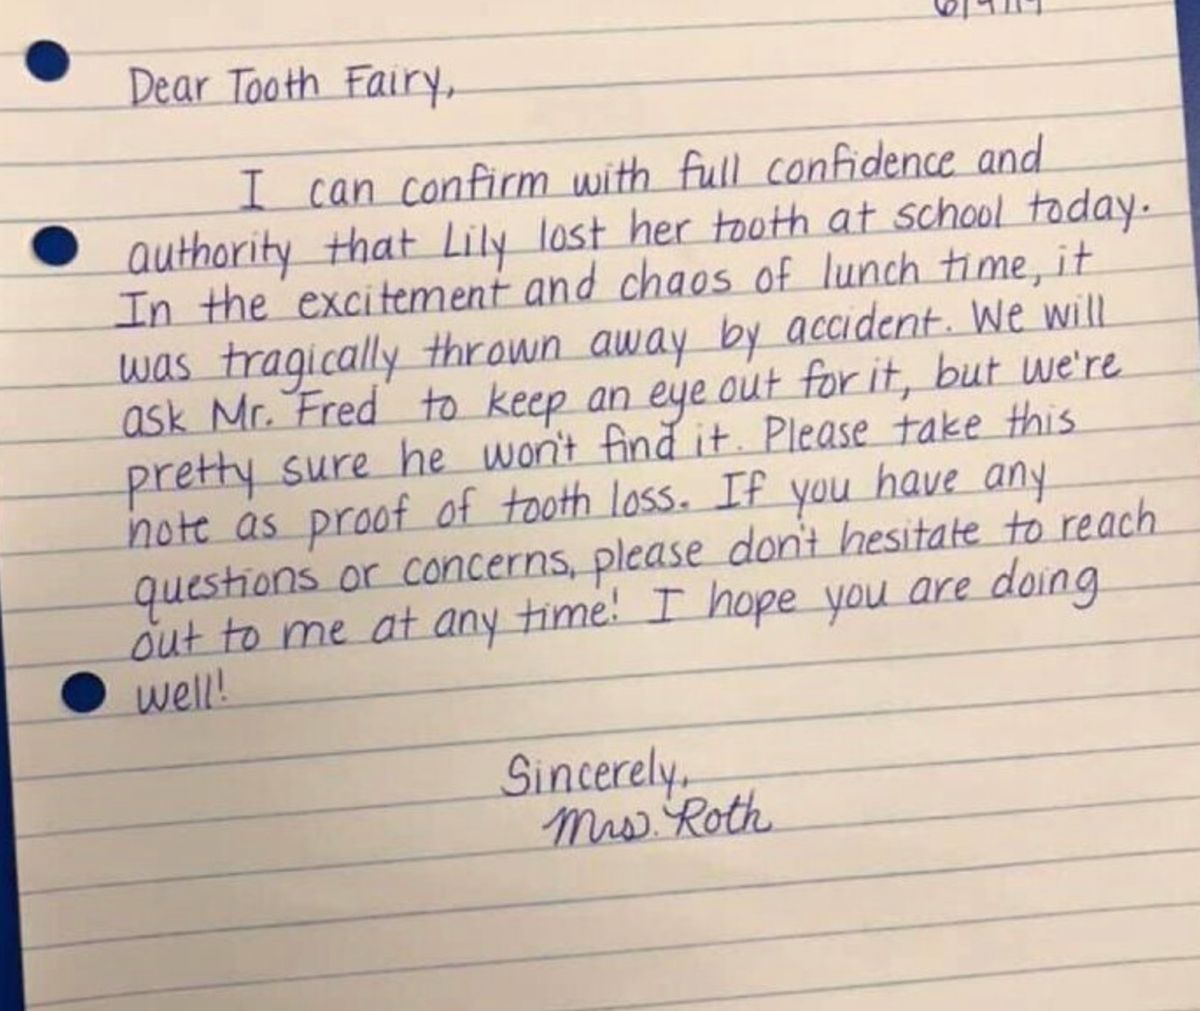 Dear Tooth Fairy,
I can confirm with full confidence and
authority that Lily lost her tooth at school today.
In the excitement and chaos of lunch time, it
was tragically thrown away by accident. We will
ask Mr. Fred to keep an eye out for it, but we're
pretty sure he won't find it. Please take this
note as proof of tooth loss. If you have any
questions or concerns, please don't hesitate to reach
out to me at any time! I hope you are doing
well!
Sincerely,
Mrs. Roth